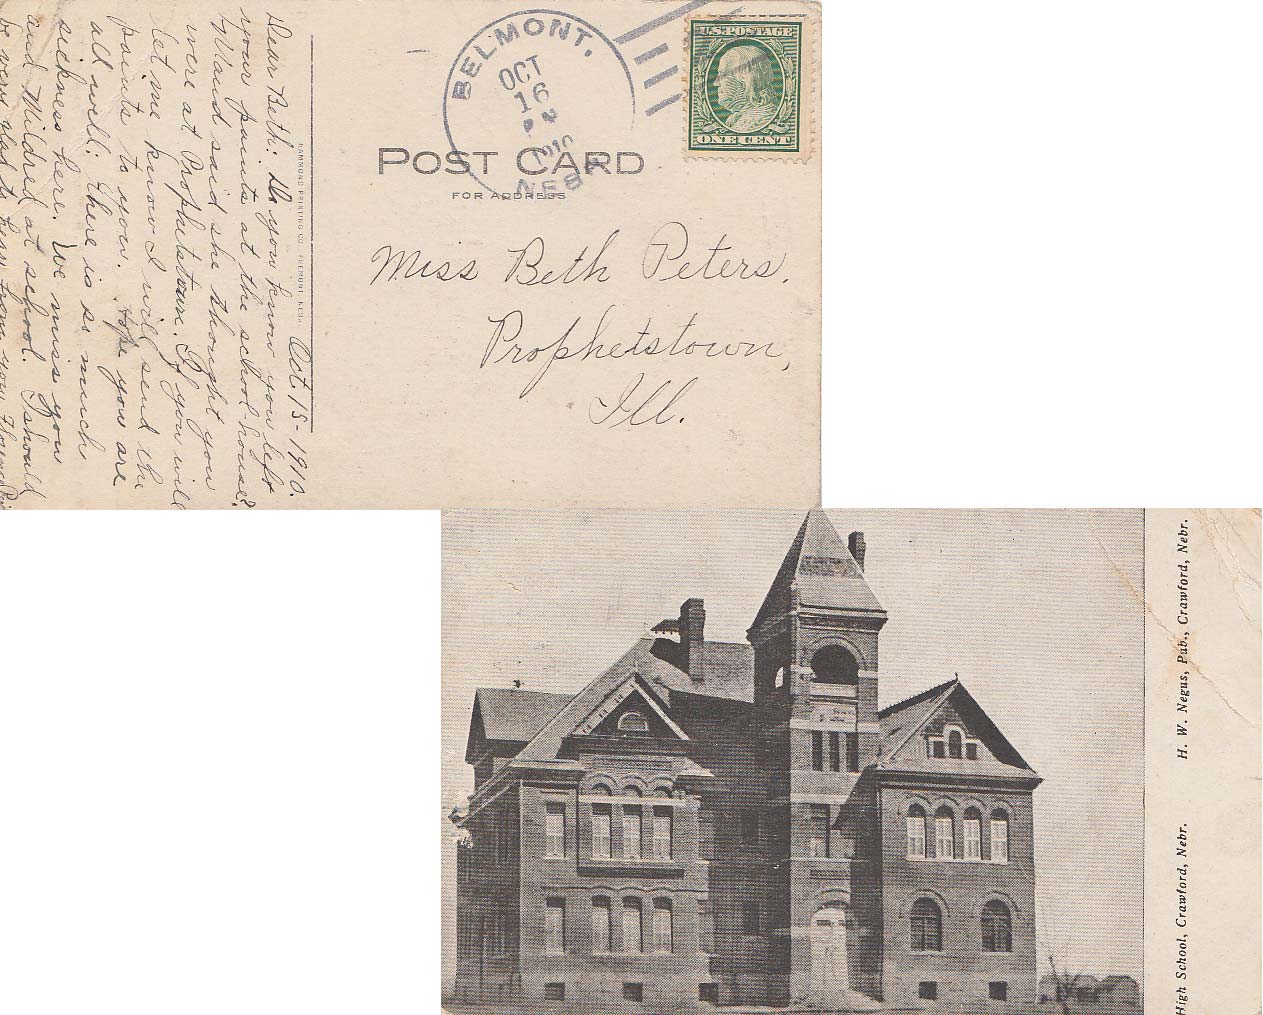 BELMONT,
OCT
16
P M
1910
NEBR
U.S. POSTAGE
ONE CENT
POST CARD
FOR ADDRESS
HAMMOND PRINTING CO. FREMONT, NEBR.
Miss Beth Peters,
Prophetstown,
Ill.
Oct. 15-1910.
Dear Beth: Do you know you left
your paints at the school-house?
Maud said she thought you
were at Prophetstown. If you will
let me know I will send the
paints to you. Hope you are
all well; there is so much
sickness here. We miss you
and Mildred at school. I should
be very glad to hear from you
High School, Crawford, Nebr.
H. W. Negus, Pub., Crawford, Nebr.